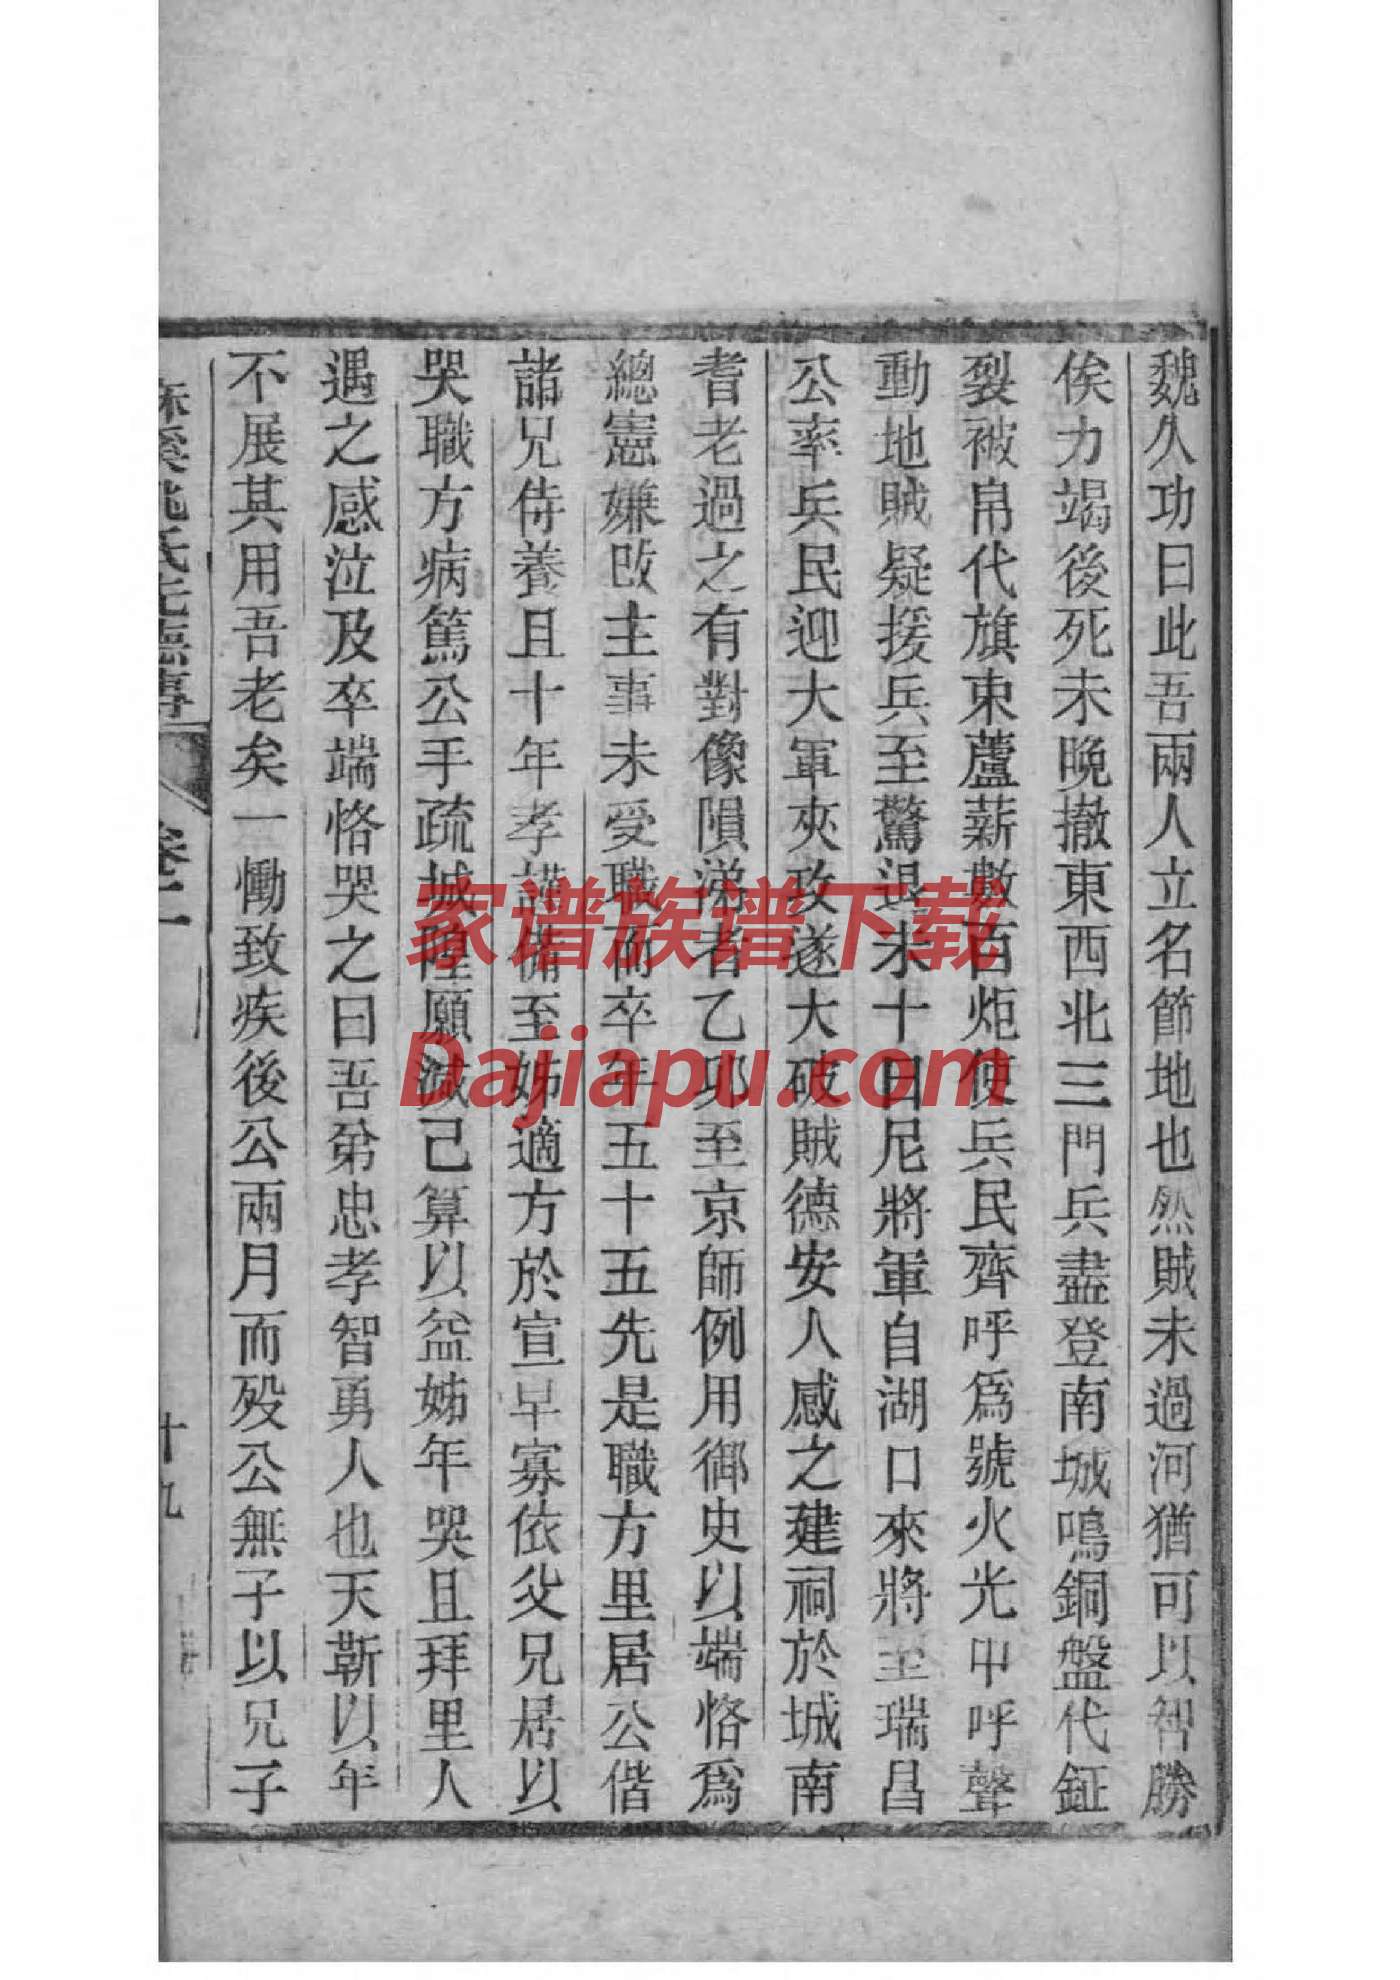 魏久功曰此吾兩人立名節地也然賊未過河猶可以智勝
俟力竭後死未晚撤東西北三門兵盡登南城鳴銅盤代鉦
裂被帛代旗束蘆薪數百炬使兵民齊呼爲號火光中呼聲
動地賊疑援兵至驚退未十日尼將軍自湖口來將至瑞昌
公率兵民迎大軍夾攻遂大破賊德安人感之建祠於城南
耆老過之有對像隕涕者乙卯至京師例用御史以端恪爲
總憲嫌改主事未受職而卒年五十五先是職方里居公偕
諸兄侍養且十年孝謹備至姊適方於宣早寡依父兄居以
哭職方病篤公手疏城隍願減己算以益姊年哭且拜里人
遇之感泣及卒端恪哭之曰吾弟忠孝智勇人也天靳以年
不展其用吾老矣一慟致疾後公兩月而歿公無子以兄子
麻溪姚氏先德傳 卷二 十九
家谱族谱下载
Dajiapu.com